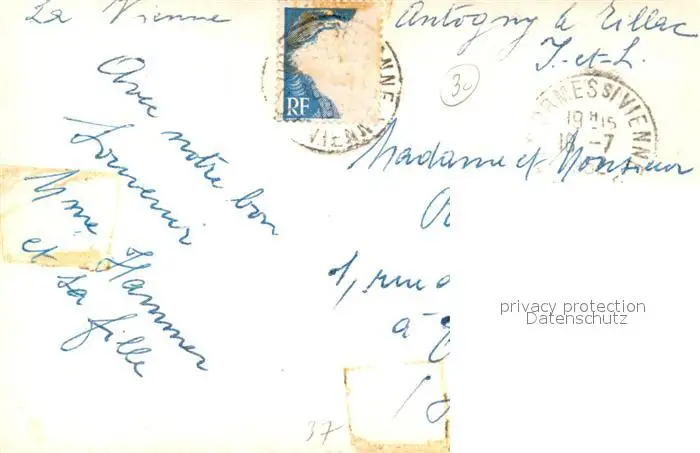 La Vienne
Antogny le Tillac
I.-et-L.
30
RF
VIENNE
ORMES S/VIENNE
19 H 15
18 -7
Avec notre bon
Souvenir
Mme Hammer
et sa fille
Madame et Monsieur
1, rue
à
privacy protection
Datenschutz
37